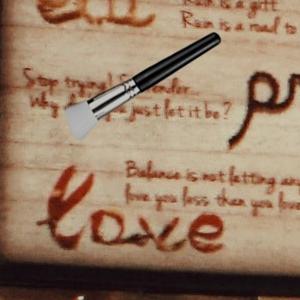 Rain is a gift
Rain is a road to
Stop trying! Surrender...
Why don't you just let it be?
Balance is not letting any
love you less than you love
love